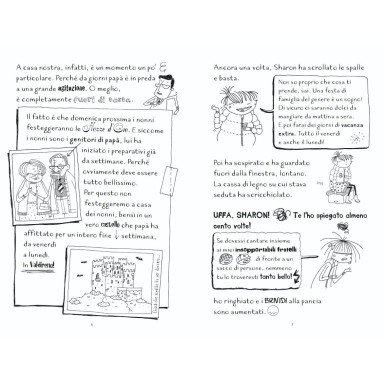 A casa nostra, infatti, è un momento un po'
particolare. Perché da giorni papà è in preda
a una grande agitazione. O meglio,
è completamente fuori di testa.
Il fatto è che domenica prossima i nonni
festeggeranno le Nozze d'Oro. E siccome
i nonni sono i genitori di papà, lui ha
iniziato i preparativi già
da settimane. Perché
ovviamente deve essere
tutto bellissimo.
Per questo non
festeggeremo a casa
dei nonni, bensì in un
vero castello che papà ha
affittato per un intero fine settimana,
da venerdì
a lunedì.
In
Ancora una volta, Sharon ha scrollato le spalle
e basta.
Non so proprio che cosa ti
prende, sai. Una festa di
famiglia del genere è un sogno!
Di sicuro ci saranno dolci da
mangiare da mattina a sera.
E poi farai dei giorni di vacanza
extra. Tutto il venerdì
e anche il lunedì!
Poi ha sospirato e ha guardato
fuori dalla finestra, lontano.
La cassa di legno su cui stava
seduta ha scricchiolato.
UFFA, SHARON! Te l'ho spiegato almeno
cento volte!
Se dovessi cantare insieme
ai miei insopportabili fratelli
di fronte a un
sacco di persone, nemmeno
tu lo troveresti tanto bello!
ho ringhiato e i BRIVIDI alla pancia
sono aumentati.